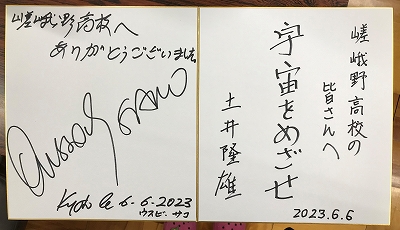 嵯峨野高校へ
ありがとうございました
Oussouby SACKO
Kyoto 6-6-2023
ウスビ・サコ
嵯峨野高校の
皆さんへ
宇宙をめざせ
土井隆雄
2023.6.6